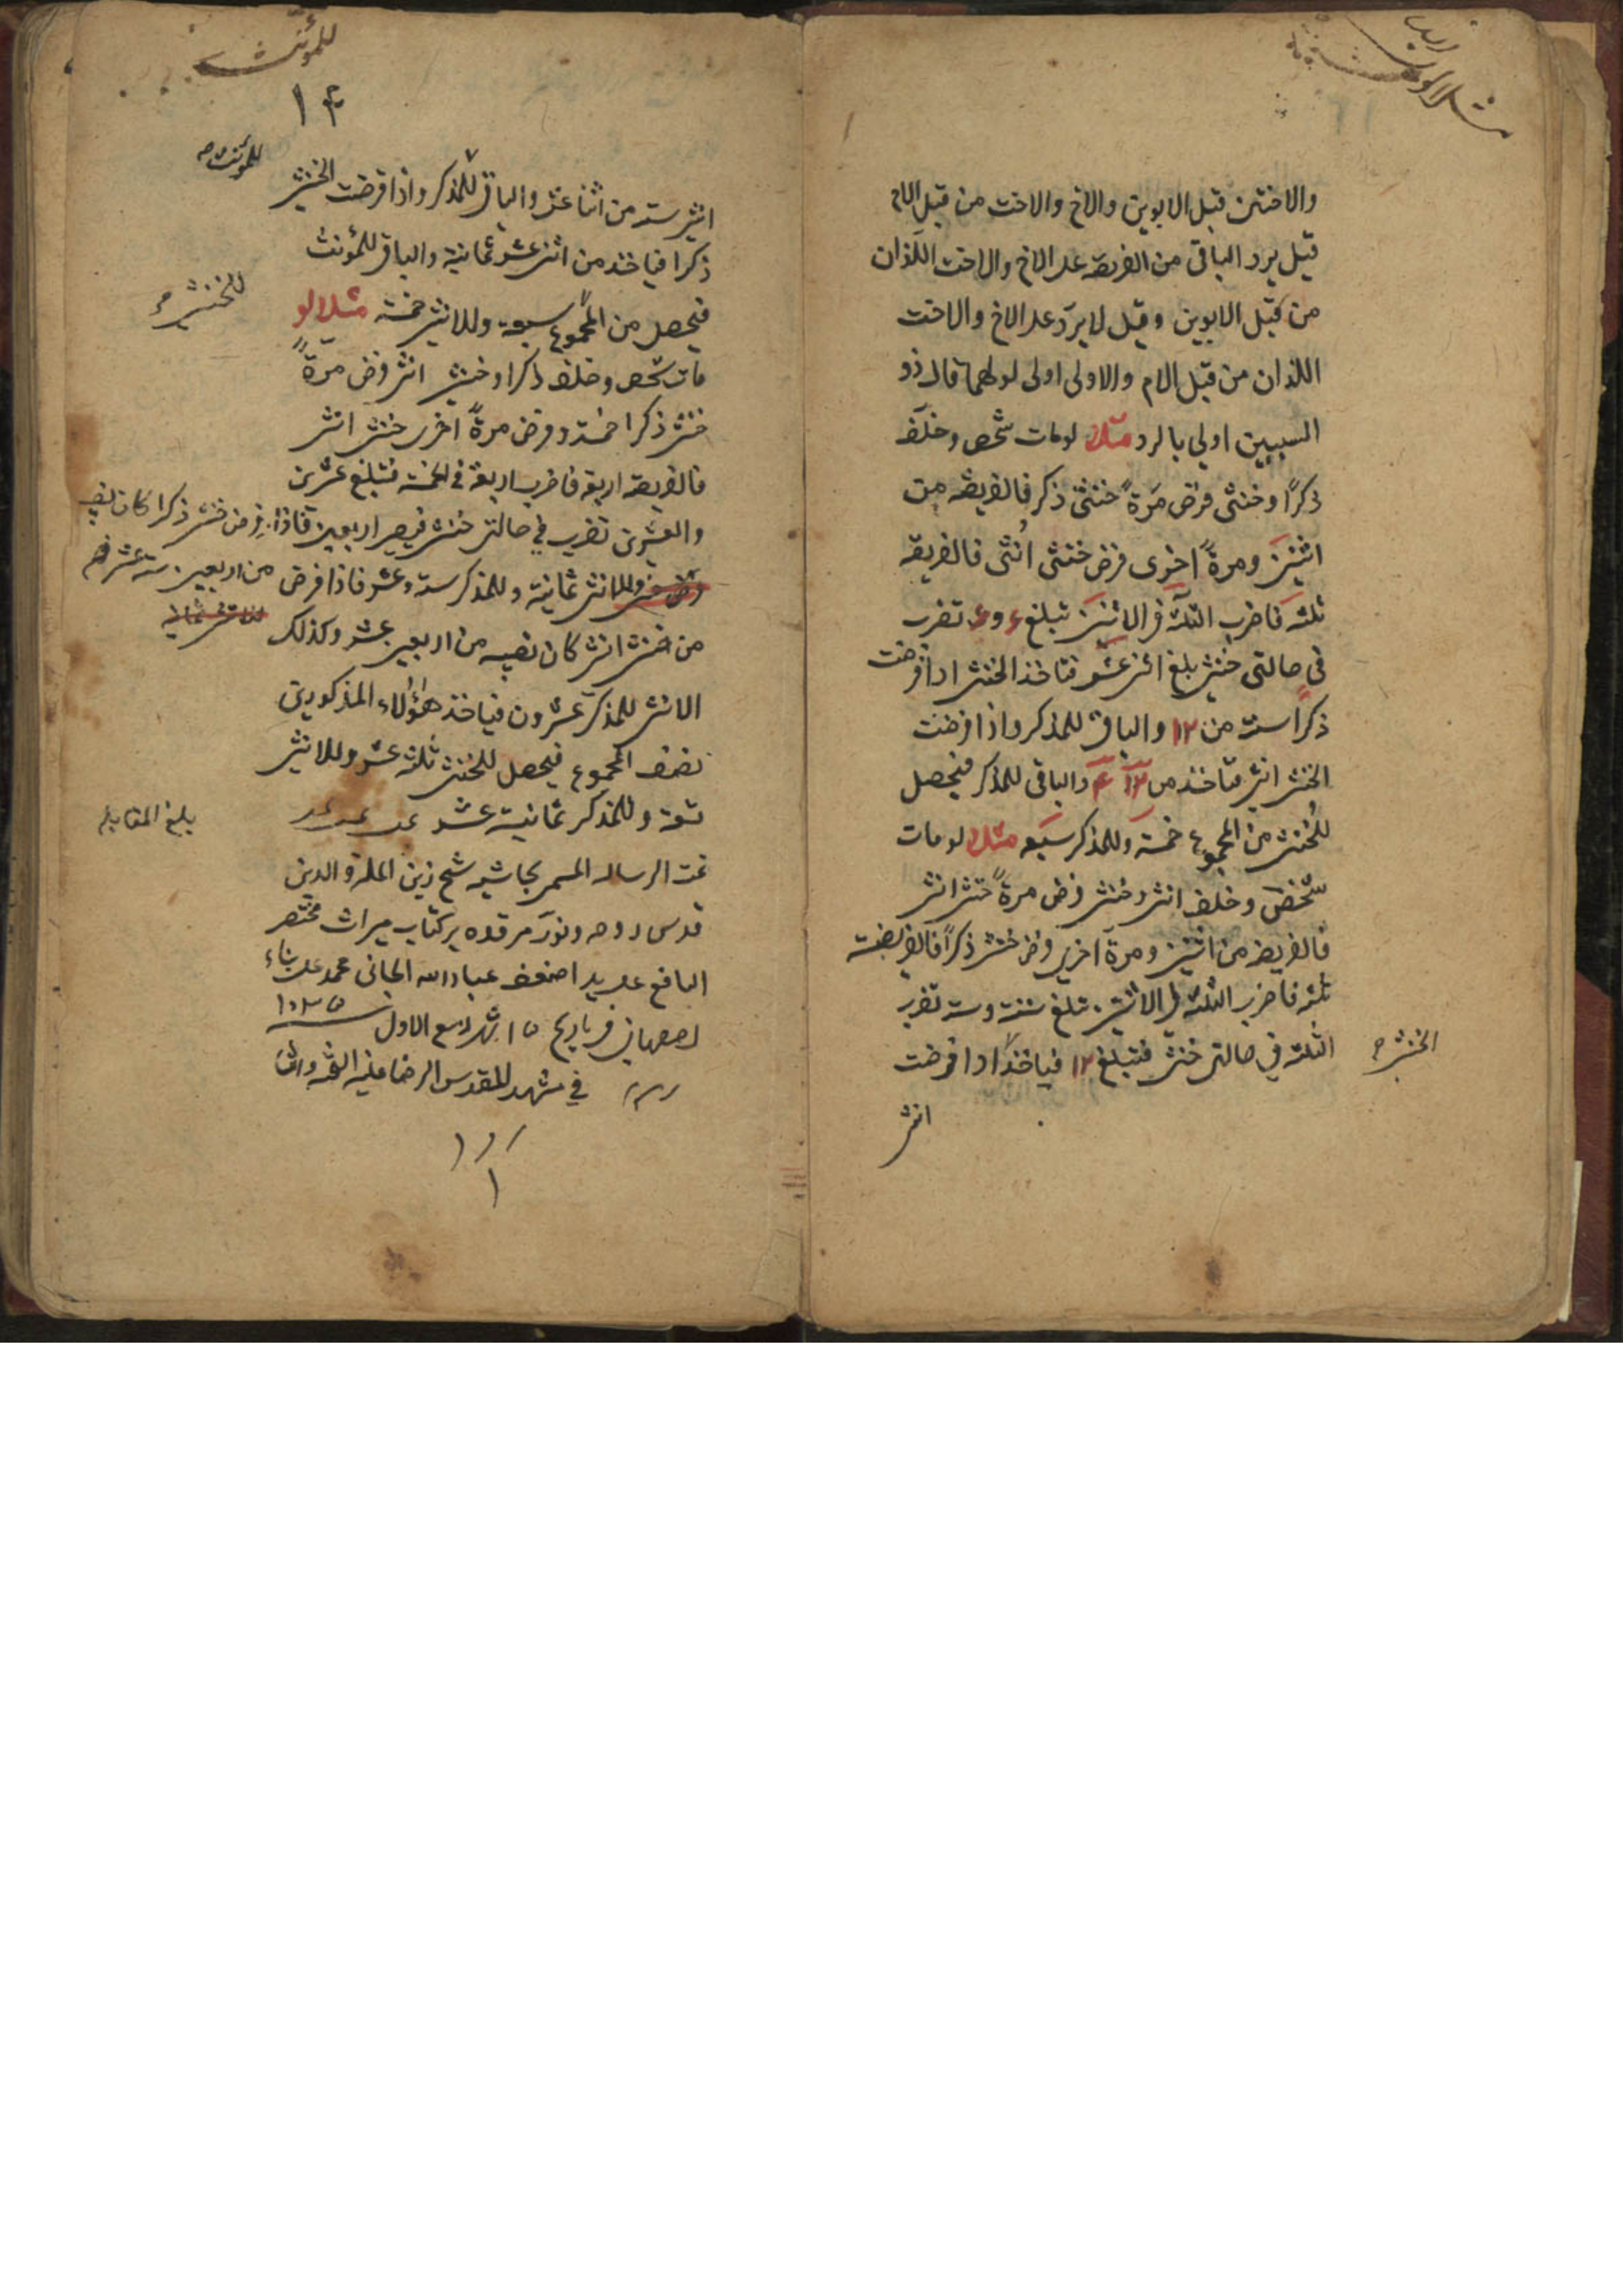 والاختين قبل الابوين والاخ والاخت من قبل الام
قيل يرد الباقى من الفريضه على الاخ والاخت اللذان
من قبل الابوين وقيل لا يردّ على الاخ والاخت
اللذان من قبل الام والاولى اولى لولهما قال ذو
السببين اولى بالرد مثلا لومات شخص وخلف
ذكرًا وخنثى فرض مرةً خنثى ذكر فالفريضه من
اثنين ومرةً اخرى فرض خنثى اُنثى فالفريضه
ثلثه فاضرب الثلثه فى الاثنين تبلغ ۶ و۶ تضرب
فى حالتى خنثى بلغ اثنى عشر فتاخذ الخنثى اذا فرضت
ذكرًا ستة من ۱۲ والباقى للمذكر واذا فرضت
الخنثى انثى فتاخذ من ۱۲ ۴ والباقى للمذكر فيحصل
للخنثى من المجموع خمسة وللمذكر سبعه مثلا لو مات
شخص وخلف انثى وخنثى فرض مرةً خنثى انثى
فالفريضه من اثنين ومرة اخرى فرض خنثى ذكراً فالفريضة
ثلثه فاضرب الثلثه فى الاثنين تبلغ ستة وستة تضرب
الثلثة في حالتى خنثى فتبلغ ۱۲ فياخذ اذا فرضت
الخنثى
انثى
للمؤنث
۱۴
للمؤنث
انثى ستة من اثنا عشر والباقى للمذكر واذا فرضت الخنثى
ذكرا فياخذ من اثنى عشر ثمانية والباقى للمؤنث
فيحصل من المجموع سبعة وللانثى خمسة مثلا لو
للخنثى
مات شخص وخلف ذكرا وخنثى انثى فرض مرةً
خنثى ذكرا خمسة وفرض مرةً اخرى خنثى انثى
فالفريضه اربعة فاضرب اربعة فى الخمسة فتبلغ عشرين
والعشرين تضرب في حالتى خنثى فيصير اربعين فاذا فرض خنثى ذكرا كان نصيبه
من اربعين ستة عشر
وللانثى ثمانية وللمذكر ستة وعشر فاذا فرض
من خنثى انثى كان نصيبه من اربعين عشر وكذلك
الانثى للمذكر عشرون فياخذ هؤلاء المذكورين
نصف المجموع فيحصل للخنثى ثلثة عشر وللانثى
تسعة وللمذكر ثمانية عشر
بلغ المقابله
تمت الرساله المسمى بحاشيه شيخ زين الملة والدين
قدس روحه ونوّر مرقده بر كتاب ميراث مختصر
النافع على يد اضعف عباد الله الجانى محمد على بناء
اصفهانى فى تاريخ ۱۵ شهر ربيع الاول سنه ۱۰۳۵
في مشهد المقدس الرضا عليه